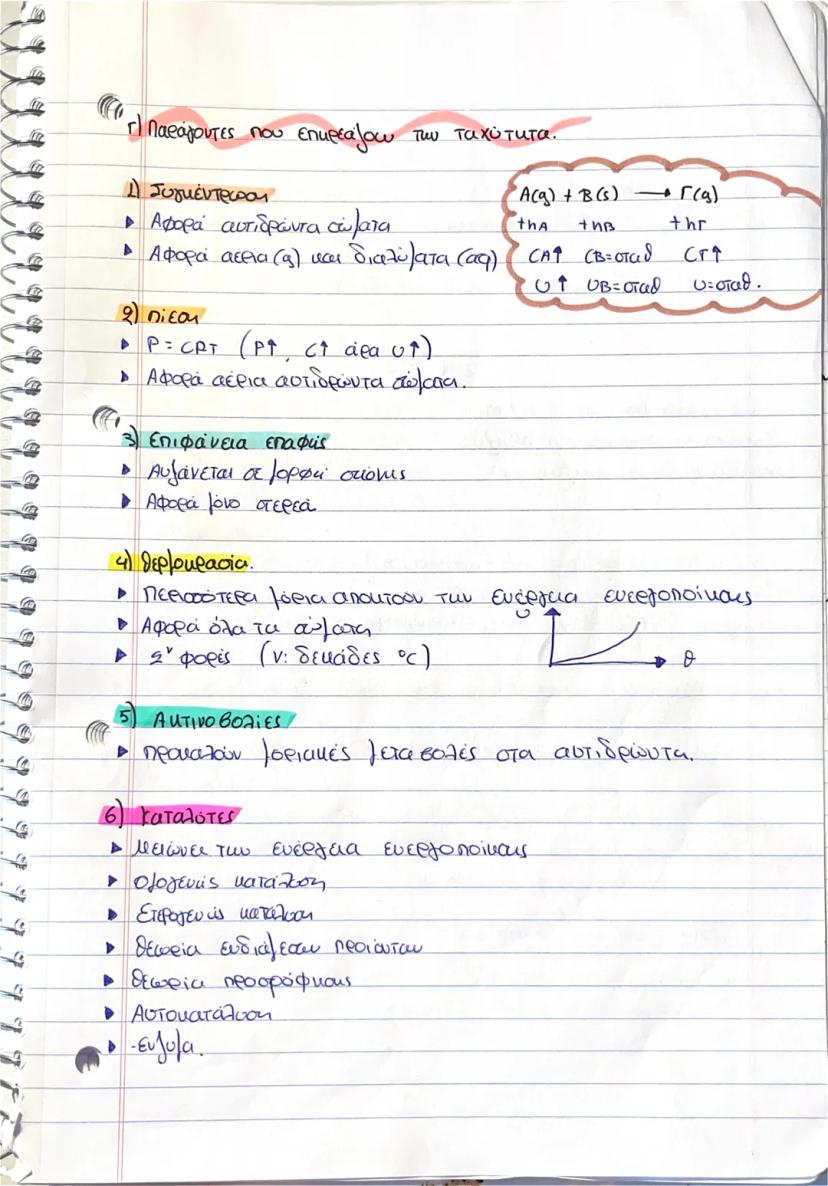 Γ) Παράγοντες που επηρεάζουν την ταχύτητα.
1) Συγκέντρωση
Αφορά αντιδρώντα σώματα
Αφορά αέρια (g) και διαλύματα (aq)
A(g) + B(s) → Γ(g)
+nA +nB +nΓ
CA↑ CB=σταθ CΓ↑
υ↑ υB=σταθ υ=σταθ.
2) Πίεση
P = CRT (P↑, C↑ άρα υ↑)
Αφορά αέρια αντιδρώντα σώματα.
3) Επιφάνεια επαφής
Αυξάνεται σε μορφή σκόνης
Αφορά μόνο στερεά
4) Θερμοκρασία.
Περισσότερα μόρια αποκτούν την ενέργεια ενεργοποίησης
Αφορά όλα τα σώματα
2ᵛ φορές (ν: δεκάδες °C)
υ
θ
5) Ακτινοβολίες
Προκαλούν μοριακές μεταβολές στα αντιδρώντα.
6) Καταλύτες
Μειώνει την ενέργεια ενεργοποίησης
Ομογενής κατάλυση
Ετερογενής κατάλυση
Θεωρία ενδιάμεσων προϊόντων
Θεωρία προσρόφησης
Αυτοκατάλυση
-Ένζυμα.